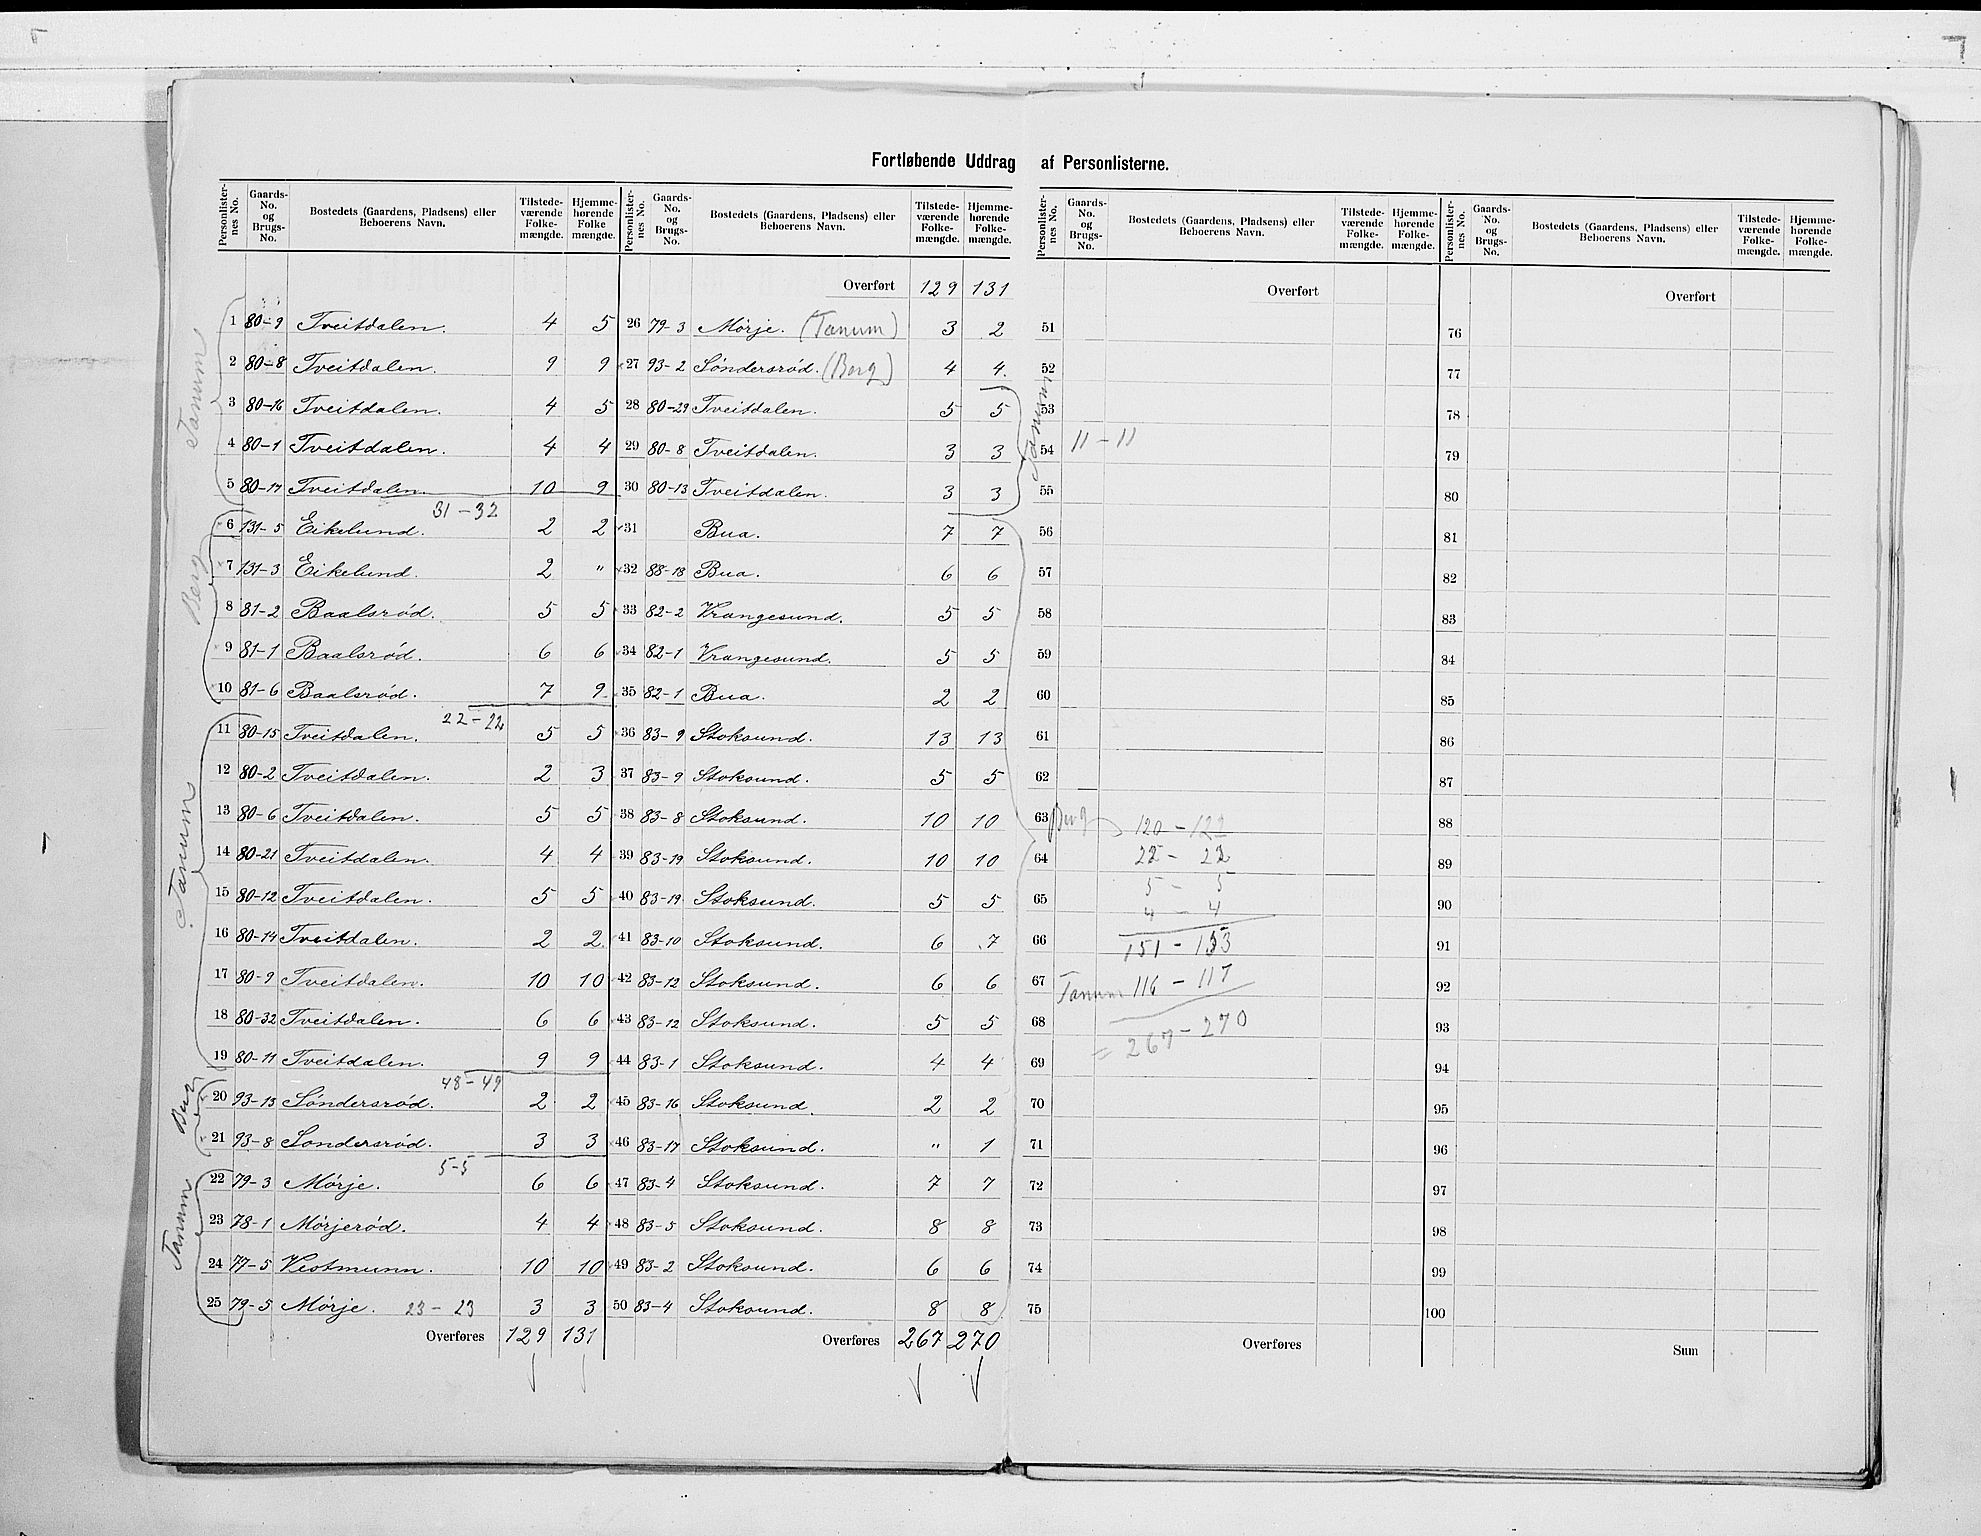 Fortløbende Uddrag af Personlisterne.
Personlister-nes No. | Gaards-No. og Brugs-No. | Bostedets (Gaardens, Pladsens) eller Beboerens Navn. | Tilstede-værende Folke-mængde. | Hjemme-hørende Folke mængde.
1 80-9 Tveitdalen. 4 5
2 80-8 Tveitdalen. 9 9
3 80-16 Tveitdalen. 4 5
4 80-1 Tveitdalen. 4 4
5 80-17 Tveitdalen. 10 9
Tanum
31-32
6 131-5 Eikelund. 2 2
7 131-3 Eikelund. 2 "
8 81-2 Baalsrød. 5 5
9 81-1 Baalsrød. 6 6
10 81-6 Baalsrød. 7 9
Berg
22-22
11 80-15 Tveitdalen. 5 5
12 80-2 Tveitdalen. 2 3
13 80-6 Tveitdalen. 5 5
14 80-21 Tveitdalen. 4 4
15 80-12 Tveitdalen. 5 5
16 80-14 Tveitdalen. 2 2
17 80-9 Tveitdalen. 10 10
18 80-32 Tveitdalen. 6 6
19 80-11 Tveitdalen. 9 9
Tanum
48-49
20 93-13 Søndersrød. 2 2
21 93-8 Søndersrød. 3 3
Berg
5-5
22 79-3 Mørje. 6 6
23 78-1 Mørjerød. 4 4
24 77-5 Vestmunn. 10 10
25 79-5 Mørje. 23-23 3 3
Tanum
Overføres 129 131
Personlister-nes No. | Gaards-No. og Brugs-No. | Bostedets (Gaardens, Pladsens) eller Beboerens Navn. | Tilstede-værende Folke-mængde. | Hjemme-hørende Folke-mængde.
Overført 129 131
26 79-3 Mørje. (Tanum) 3 2
27 93-2 Søndersrød. (Berg) 4 4.
28 80-29 Tveitdalen. 5 5
29 80-8 Tveitdalen. 3 3
30 80-13 Tveitdalen. 3 3
Tanum 11-11
31 Bua. 7 7
32 88-18 Bua. 6 6
33 82-2 Vrangesund. 5 5
34 82-1 Vrangesund. 5 5
35 82-1 Bua. 2 2
36 83-9 Stoksund. 13 13
37 83-9 Stoksund. 5 5
38 83-8 Stoksund. 10 10
39 83-19 Stoksund. 10 10
40 83-19 Stoksund. 5 5
41 83-10 Stoksund. 6 7
42 83-12 Stoksund. 6 6
43 83-12 Stoksund. 5 5
44 83-1 Stoksund. 4 4
45 83-16 Stoksund. 2 2
46 83-17 Stoksund. " 1
47 83-4 Stoksund. 7 7
48 83-5 Stoksund. 8 8
49 83-2 Stoksund. 6 6
50 83-4 Stoksund. 8 8
Overføres 267 270
Personlister-nes No. | Gaards-No. og Brugs-No. | Bostedets (Gaardens, Pladsens) eller Beboerens Navn. | Tilstede-værende Folke-mængde. | Hjemme-hørende Folke-mængde.
Overført
51
52
53
54
55
56
57
58
59
60
61
62
63 Berg 120-122
64 22-22
65 5-5
4-4
66 151-153
67 Tanum 116-117
68 = 267-270
69
70
71
72
73
74
75
Overføres
Personlister-nes No. | Gaards-No. og Brugs-No. | Bostedets (Gaardens, Pladsens) eller Beboerens Navn. | Tilstede-værende Folke-mængde. | Hjemme-hørende Folke-mængde.
Overført
76
77
78
79
80
81
82
83
84
85
86
87
88
89
90
91
92
93
94
95
96
97
98
99
100
Sum